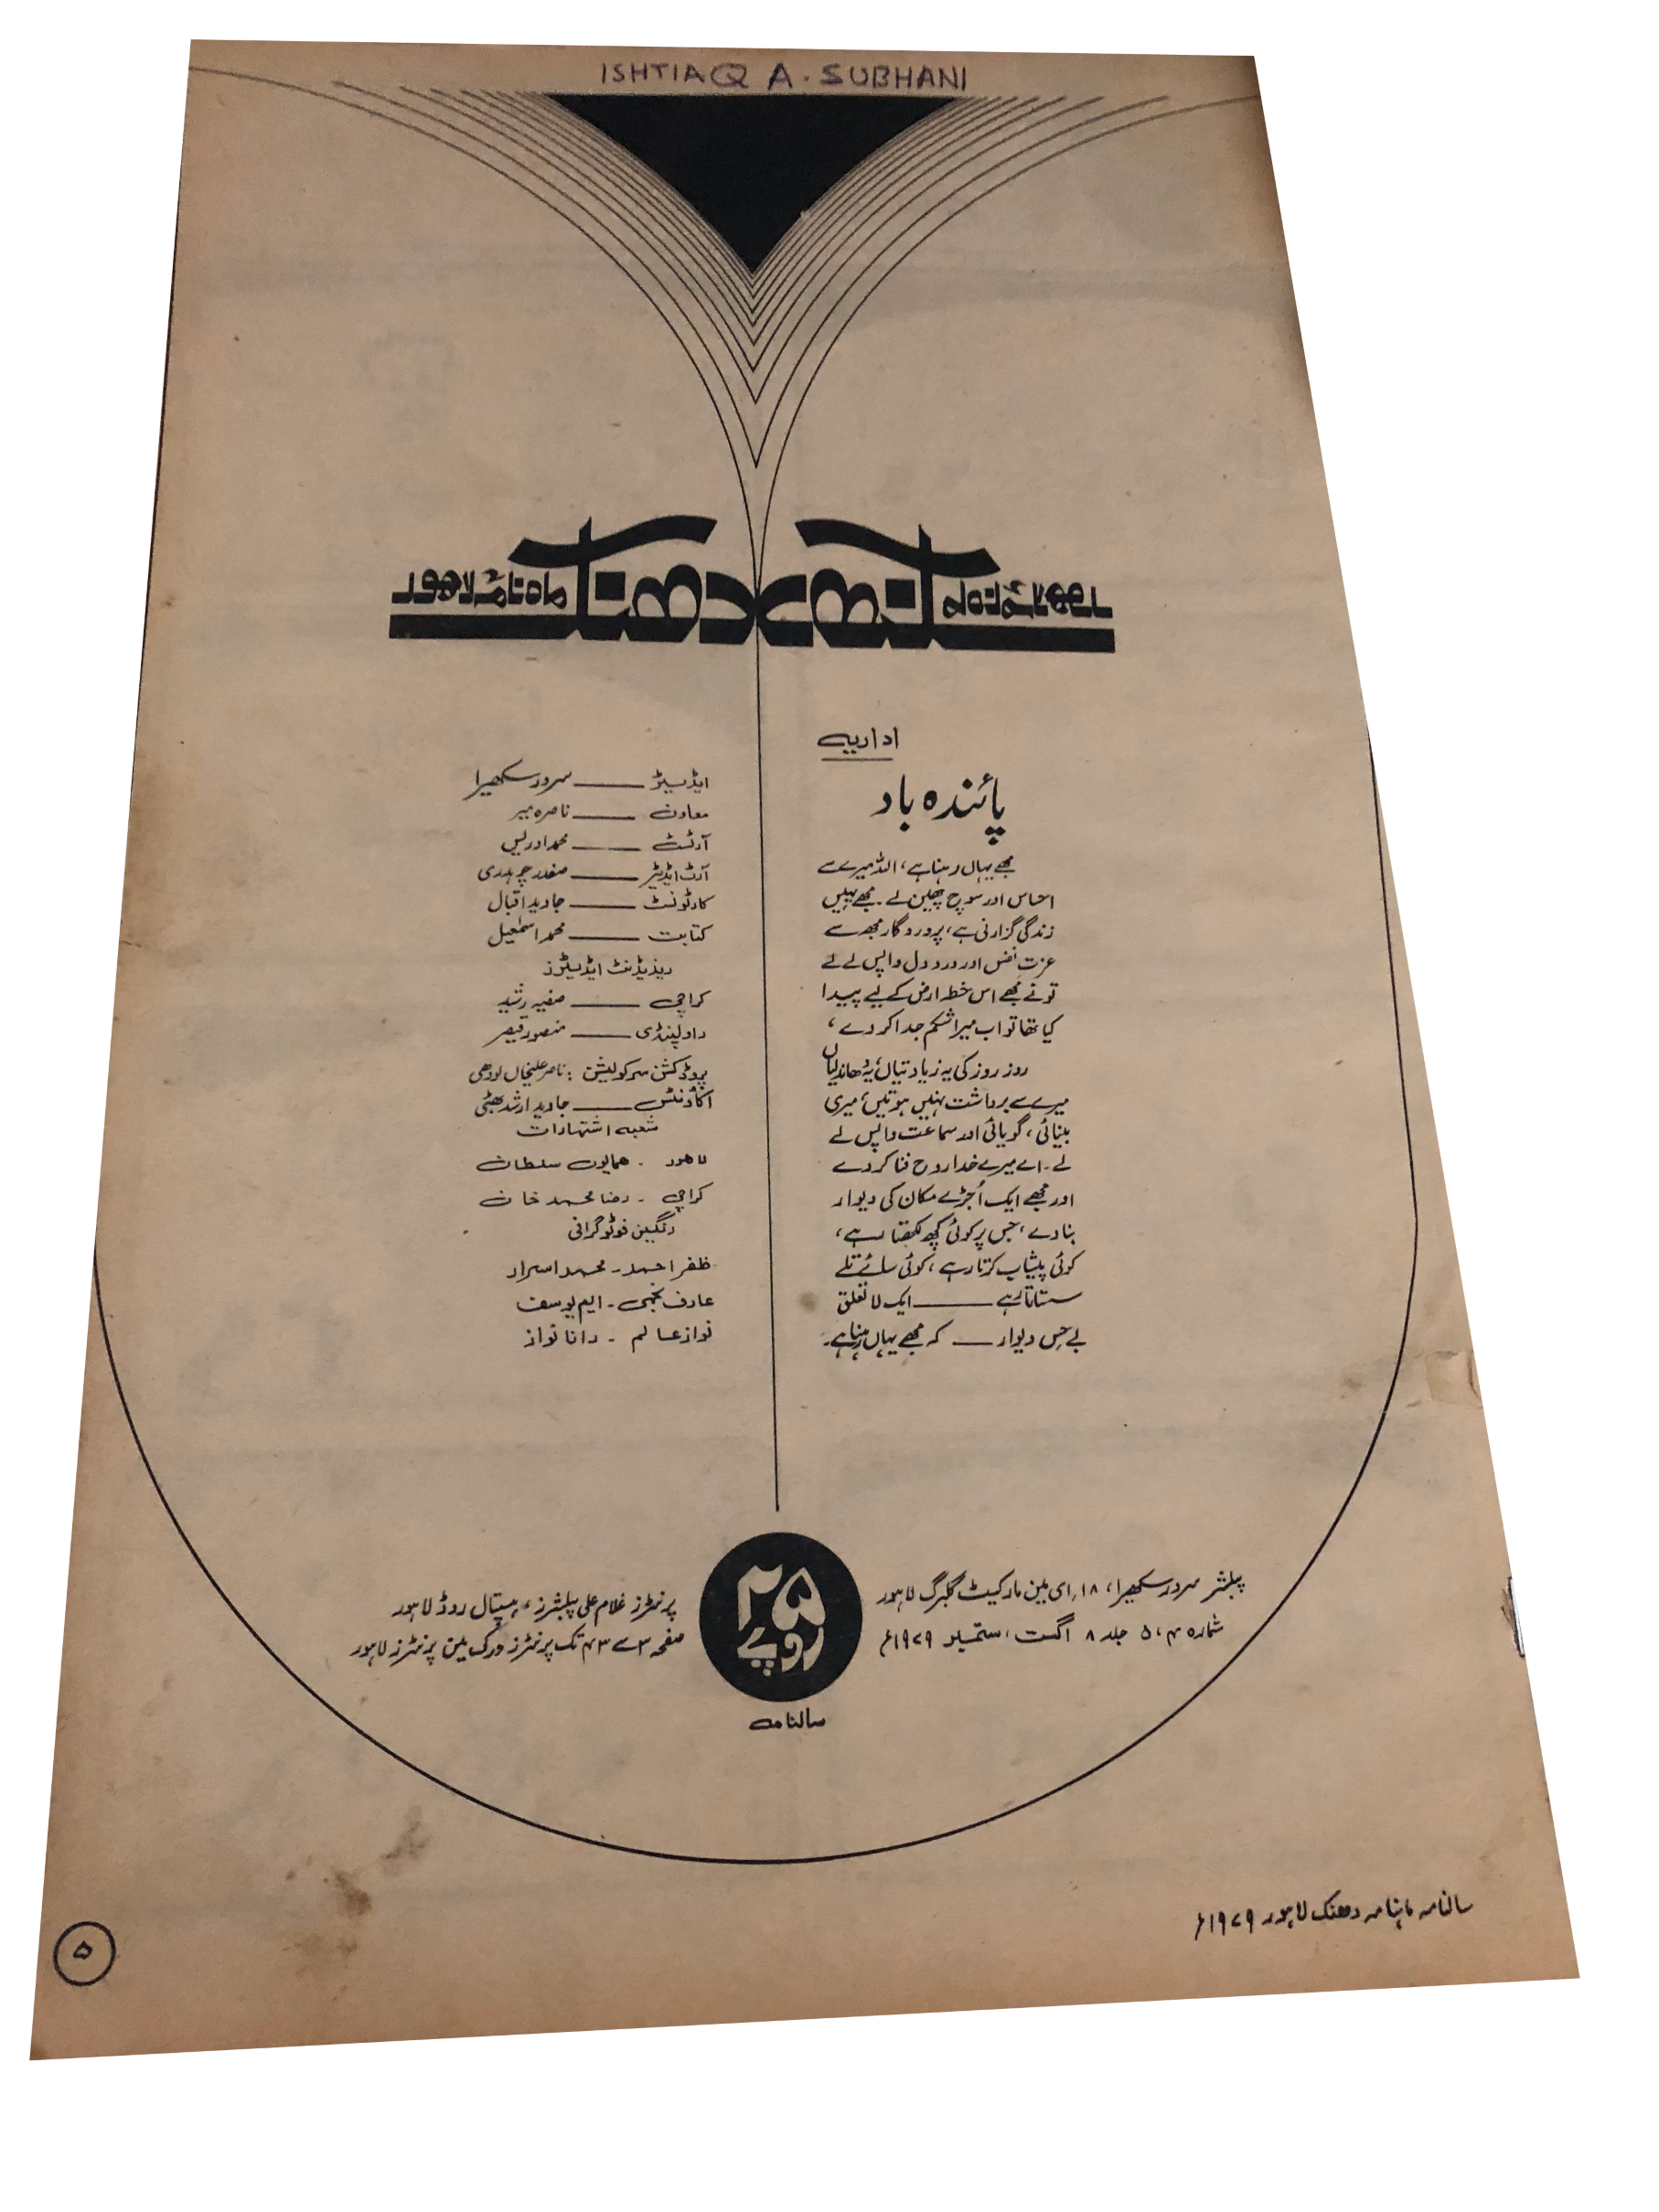 ISHTIAQ A. SUBHANI
ماہنامہ دھنک لاہور
اداریہ
پائندہ باد
مجھے یہاں رہنا ہے، اللہ میرے سے
احساس اور سوچ چھین لے۔ مجھے یہیں
زندگی گزارنی ہے، پروردگار مجھ سے
عزتِ نفس اور دردِ دل واپس لے لے
تو نے مجھے اس خطہ ارض کے لیے پیدا
کیا تھا تو اب میرا شکم جدا کر دے،
روز روز کی یہ زیادتیاں، یہ دھاندلیاں
میرے سے برداشت نہیں ہوتیں، میری
بینائی، گویائی اور سماعت واپس لے
لے۔ اے میرے خدا روح فنا کر دے
اور مجھے ایک اُجڑے مکان کی دیوار
بنا دے، جس پر کوئی کچھ لکھتا رہے،
کوئی پیشاب کرتا رہے، کوئی سائے تلے
سستاتا رہے ــــــ ایک لاتعلق
بے حِس دیوار ــــــ کہ مجھے یہاں رہنا ہے۔
ایڈیٹر ــــــ سرور سکھیرا
معاون ــــــ ناصرہ میر
آرٹسٹ ــــــ محمد ادریس
آرٹ ایڈیٹر ــــــ صفدر چوہدری
کارٹونسٹ ــــــ جاوید اقبال
کتابت ــــــ محمد اسمٰعیل
ریذیڈنٹ ایڈیٹرز
کراچی ــــــ صفیہ رشید
راولپنڈی ــــــ منصور قیصر
پروڈکشن سرکولیشن : ناصر علیخاں لودھی
اکاؤنٹس ــــــ جاوید ارشد بھٹی
شعبہ اشتہارات
لاہور ۔ ہمایوں سلطان
کراچی ۔ رضا محمد خان
رنگین فوٹوگرافی
ظفر احمد ۔ محمد اسرار
عارف نجمی ۔ ایم یوسف
نواز عالم ۔ رانا نواز
پبلشر سرور سکھیرا، ۱۸ ای مین مارکیٹ گلبرگ لاہور
شمارہ ۴، ۵ جلد ۸ اگست، ستمبر ۱۹۷۹ء
۲۵
روپے
سالنامہ
پرنٹرز غلام علی پبلشرز، ہسپتال روڈ لاہور
صفحہ ۳ سے ۳۴ تک پرنٹرز ورک مین پرنٹرز لاہور
سالنامہ ماہنامہ دھنک لاہور ۱۹۷۹ء
۵